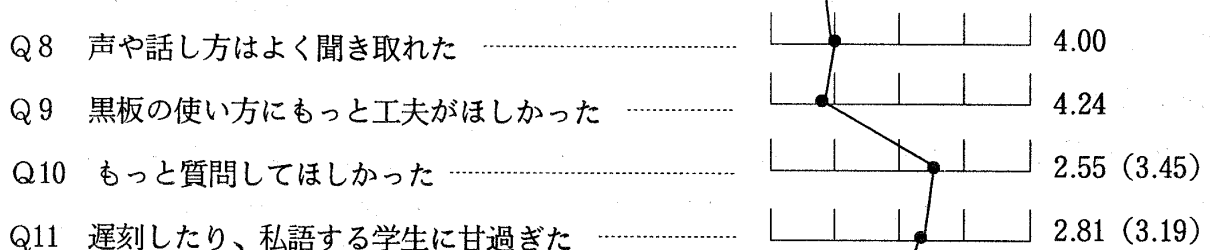 Q8 声や話し方はよく聞き取れた 4.00
Q9 黒板の使い方にもっと工夫がほしかった 4.24
Q10 もっと質問してほしかった 2.55 (3.45)
Q11 遅刻したり、私語する学生に甘過ぎた 2.81 (3.19)